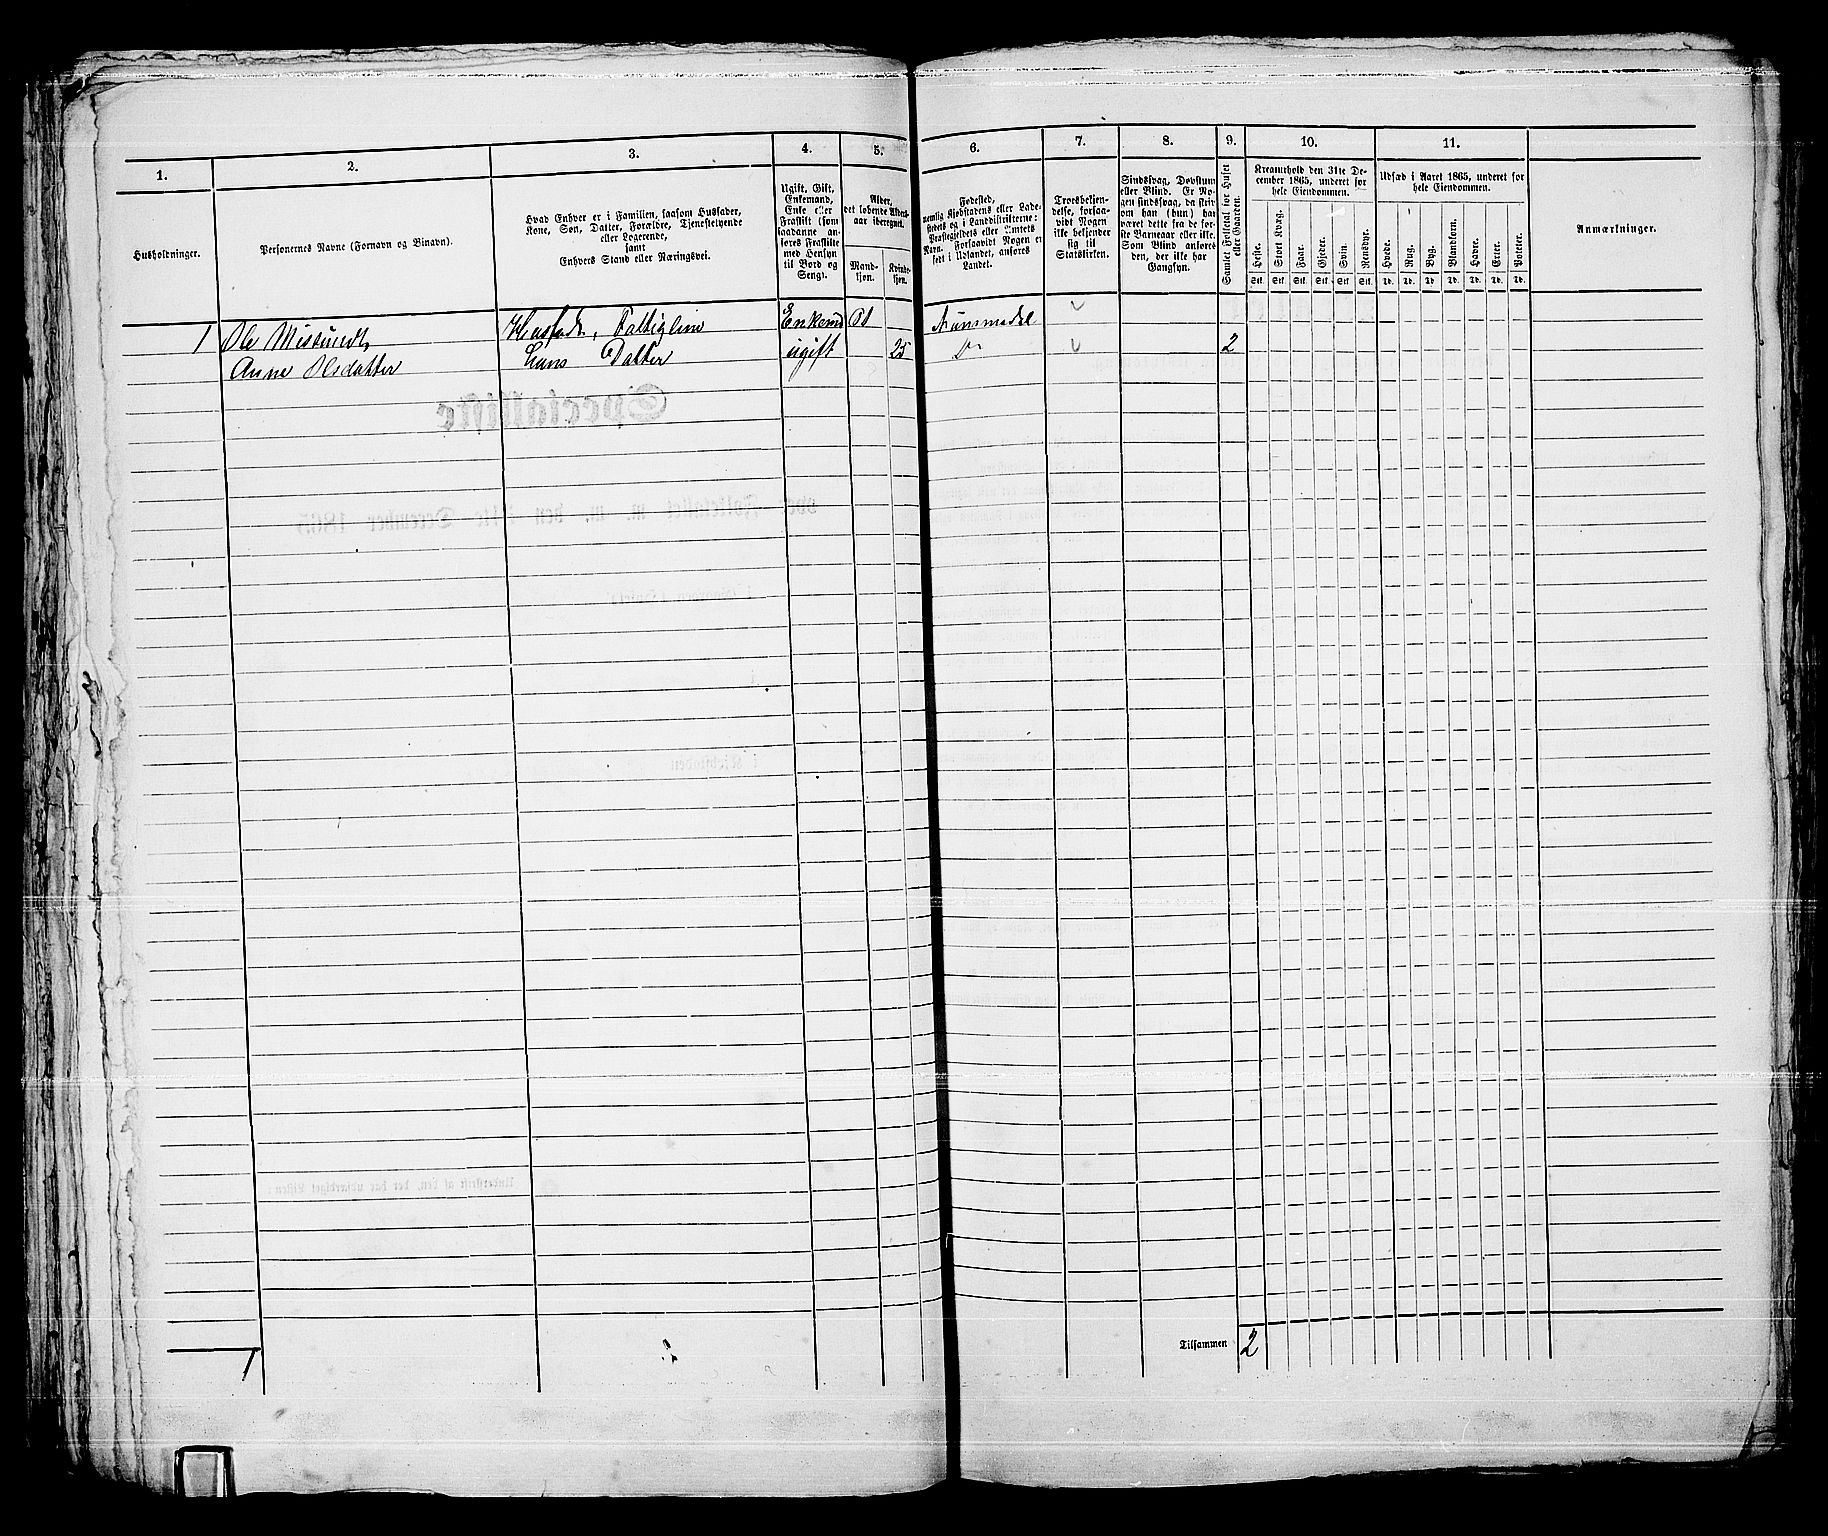 1.
2.
3.
4.
5.
6.
7.
8.
9.
10.
11.
Husholdninger.
Personernes Navne (Fornavn og Binavn).
Hvad Enhver er i Familien, saasom Husfader,
Kone, Søn, Datter, Forældre, Tjenestetyende
eller Logerende,
samt
Enhvers Stand eller Næringsvei.
Ugift, Gift,
Enkemand,
Enke eller
Fraskilt (som
saadanne an-
føres Fraskilte
med Hensyn
til Bord og
Seng).
Alder,
det løbende Alders-
aar iberegnet.
Mand-
kjøn.
Kvinde-
kjøn.
Fødested,
nemlig Kjøbstadens eller Lade-
stedets og i Landdistrikterne:
Præstegjeldets eller Amtets
Navn. Forsaavidt Nogen er
født i Udlandet, anføres
Landet.
Troesbekjen-
delse, forsaa-
vidt Nogen
ikke bekjender
sig til
Statskirken.
Sindssvag, Døvstum
eller Blind. Er No-
gen sindssvag, da skriv
om han (hun) har
været dette fra de før-
ste Barneaar eller ikke.
Som Blind anføres
den, der ikke har
Gangsyn.
Samlet Folketal for Huset
eller Gaarden.
Kreaturhold den 31te De-
cember 1865, underet for
hele Eiendommen.
Heste.
Stort Kvæg.
Faar.
Gjeder.
Svin.
Rensdyr.
Stk. Stk. Stk. Stk. Stk. Stk.
Udsæd i Aaret 1865, underet for
hele Eiendommen.
Hvede.
Rug.
Byg.
Blandkorn.
Havre.
Erter.
Poteter.
Td. Td. Td. Td. Td. Td. Td.
Anmærkninger.
1 Ole Husfadr, Enkemd
Anne Olsdatter Hans Datter ugift 25 Do 2
Specialliste
over Folketallet m. m. den 31te December 1865
i Kjøbstaden
Underskrift af den, der har udfærdiget Listen:
Tilsammen 2
1